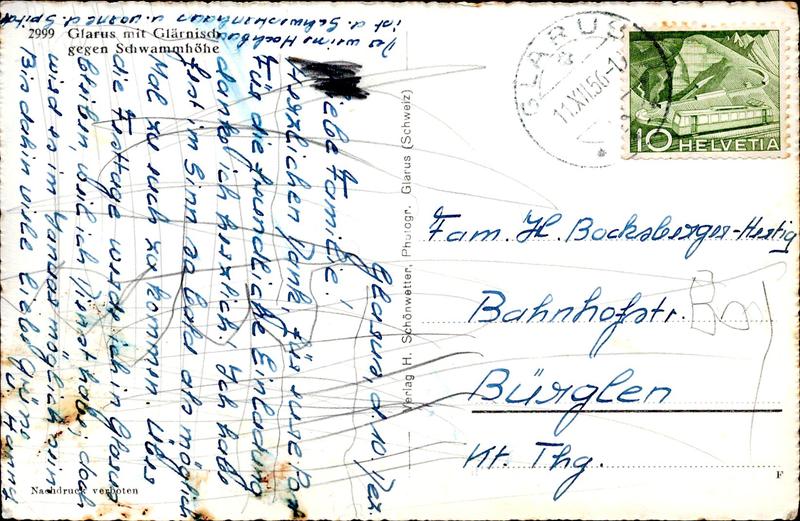 2999 Glarus mit Glärnisch
gegen Schwammhöhe
Glarus, d 10 Dez.
Liebe Familie!
Herzlichen Dank, für eure
Für die freundliche Einladung
danke ich herzlich. Ich habe
fest im Sinn so bald als möglich
Mal zu euch zu kommen. Übers
die Festtage werde ich in Glarus
bleiben weil ich Dienst habe, doch
wird es im Januar möglich sein
Bis dahin viele liebe Grüsse
v. Hanny
Das weisse Hochhaus
ist d. Schwesternhaus u. vorne d. Spital
Nachdruck verboten
Verlag H. Schönwetter, Photogr. Glarus (Schweiz)
GLARUS
11.XII.56
10 HELVETIA
Fam. H. Bocksberger-Hertig
Bahnhofstr.
Bürglen
Kt. Thg.
F